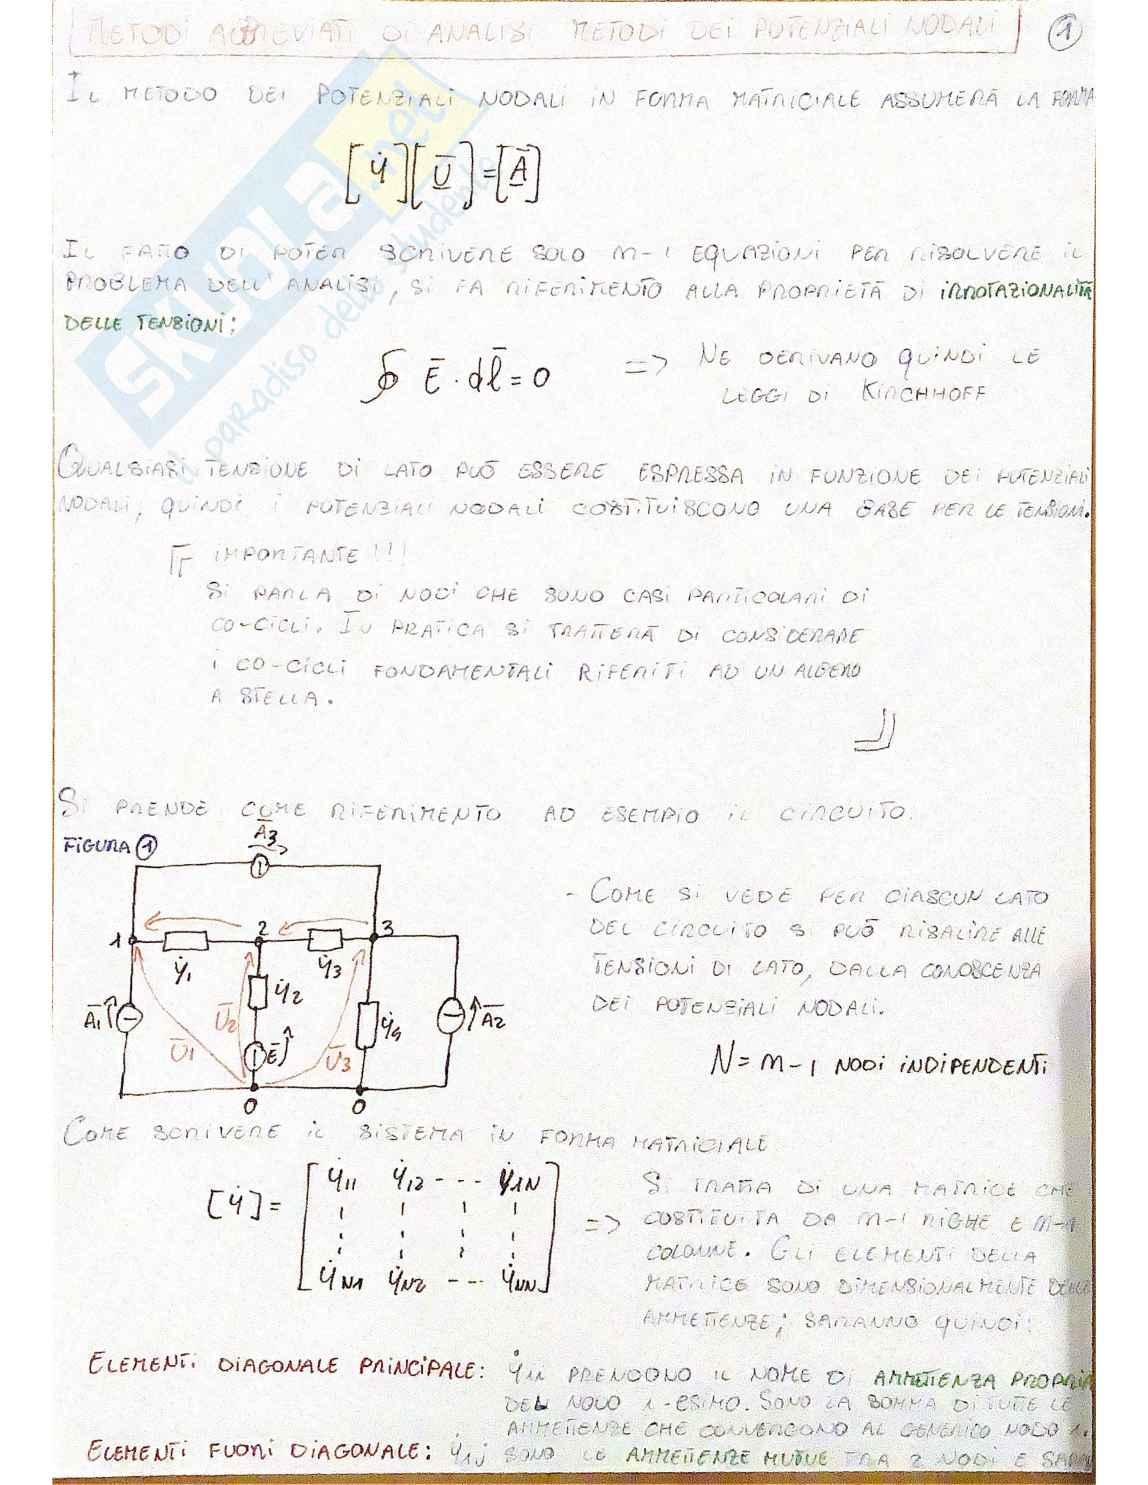 METODI ABBREVIATI DI ANALISI METODI DEI POTENZIALI NODALI 1
IL METODO DEI POTENZIALI NODALI IN FORMA MATRICIALE ASSUMERÀ LA FORMA
[Ẏ][U̅]=[A̅]
IL FATTO DI POTER SCRIVERE SOLO M-1 EQUAZIONI PER RISOLVERE IL
PROBLEMA DELL'ANALISI, SI FA RIFERIMENTO ALLA PROPRIETÀ DI IRROTAZIONALITÀ
DELLE TENSIONI:
∮ E̅ · dl̅ = 0 => NE DERIVANO QUINDI LE
LEGGI DI KIRCHHOFF
QUALSIASI TENSIONE DI LATO PUÒ ESSERE ESPRESSA IN FUNZIONE DEI POTENZIALI
NODALI, QUINDI I POTENZIALI NODALI COSTITUISCONO UNA BASE PER LE TENSIONI.
IMPORTANTE !!!
SI PARLA DI NODI CHE SONO CASI PARTICOLARI DI
CO-CICLI. IN PRATICA SI TRATTERÀ DI CONSIDERARE
I CO-CICLI FONDAMENTALI RIFERITI AD UN ALBERO
A STELLA.
SI PRENDE COME RIFERIMENTO AD ESEMPIO IL CIRCUITO:
FIGURA 1
A̅3
1 2 3
Ẏ1 Ẏ3
Ẏ2
A̅1 U̅2 Ẏ4 A̅2
U̅1 E̅ U̅3
0 0
- COME SI VEDE PER CIASCUN LATO
DEL CIRCUITO SI PUÒ RISALIRE ALLE
TENSIONI DI LATO, DALLA CONOSCENZA
DEI POTENZIALI NODALI.
N = M-1 NODI INDIPENDENTI
COME SCRIVERE IL SISTEMA IN FORMA MATRICIALE
[Ẏ] =
Ẏ11 Ẏ12 --- Ẏ1N
ẎN1 ẎN2 --- ẎNN
=> SI TRATTA DI UNA MATRICE CHE
COSTITUITA DA M-1 RIGHE E M-1
COLONNE. GLI ELEMENTI DELLA
MATRICE SONO DIMENSIONALMENTE DELLE
AMMETTENZE; SARANNO QUINDI:
ELEMENTI DIAGONALE PRINCIPALE: Ẏii PRENDONO IL NOME DI AMMETTENZA PROPRIA
DEL NODO i-ESIMO. SONO LA SOMMA DI TUTTE LE
AMMETTENZE CHE CONVERGONO AL GENERICO NODO i.
ELEMENTI FUORI DIAGONALE: Ẏij SONO LE AMMETTENZE MUTUE TRA 2 NODI E
SKUOLA.net
il paradiso dello studente